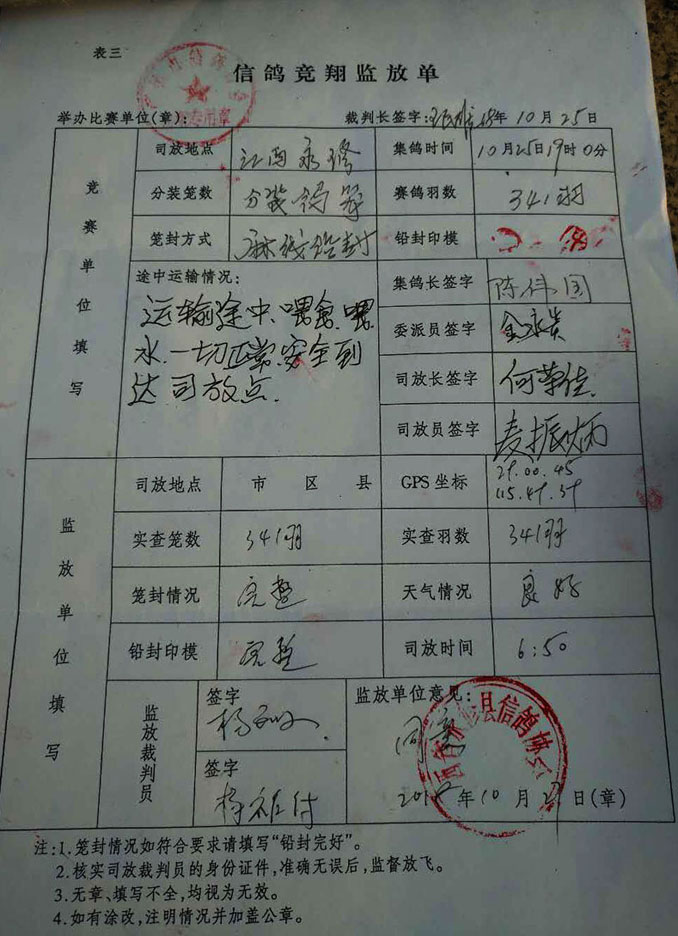 表三
信鸽竞翔监放单
举办比赛单位(章): 裁判长签字: 18年10月25日
竞赛单位填写
司放地点 江西永修 集鸽时间 10月25日19时0分
分装笼数 分装鸽笼 赛鸽羽数 341羽
笼封方式 麻绳铅封 铅封印模
途中运输情况:
运输途中、喂食、喂
水.一切正常.安全到
达司放点.
集鸽长签字 陈伟国
委派员签字 金永贵
司放长签字 何荣佳
司放员签字 麦振炳
监放单位填写
司放地点 市 区 县 GPS坐标 29.00.45
115.49.39
实查笼数 341羽 实查羽数 341羽
笼封情况 完整 天气情况 良好
铅封印模 完整 司放时间 6:50
监放裁判员
签字
签字
监放单位意见:
同意
县信鸽协会
年10月27日(章)
注:1.笼封情况如符合要求请填写“铅封完好”。
2.核实司放裁判员的身份证件,准确无误后,监督放飞。
3.无章、填写不全,均视为无效。
4.如有涂改,注明情况并加盖公章。